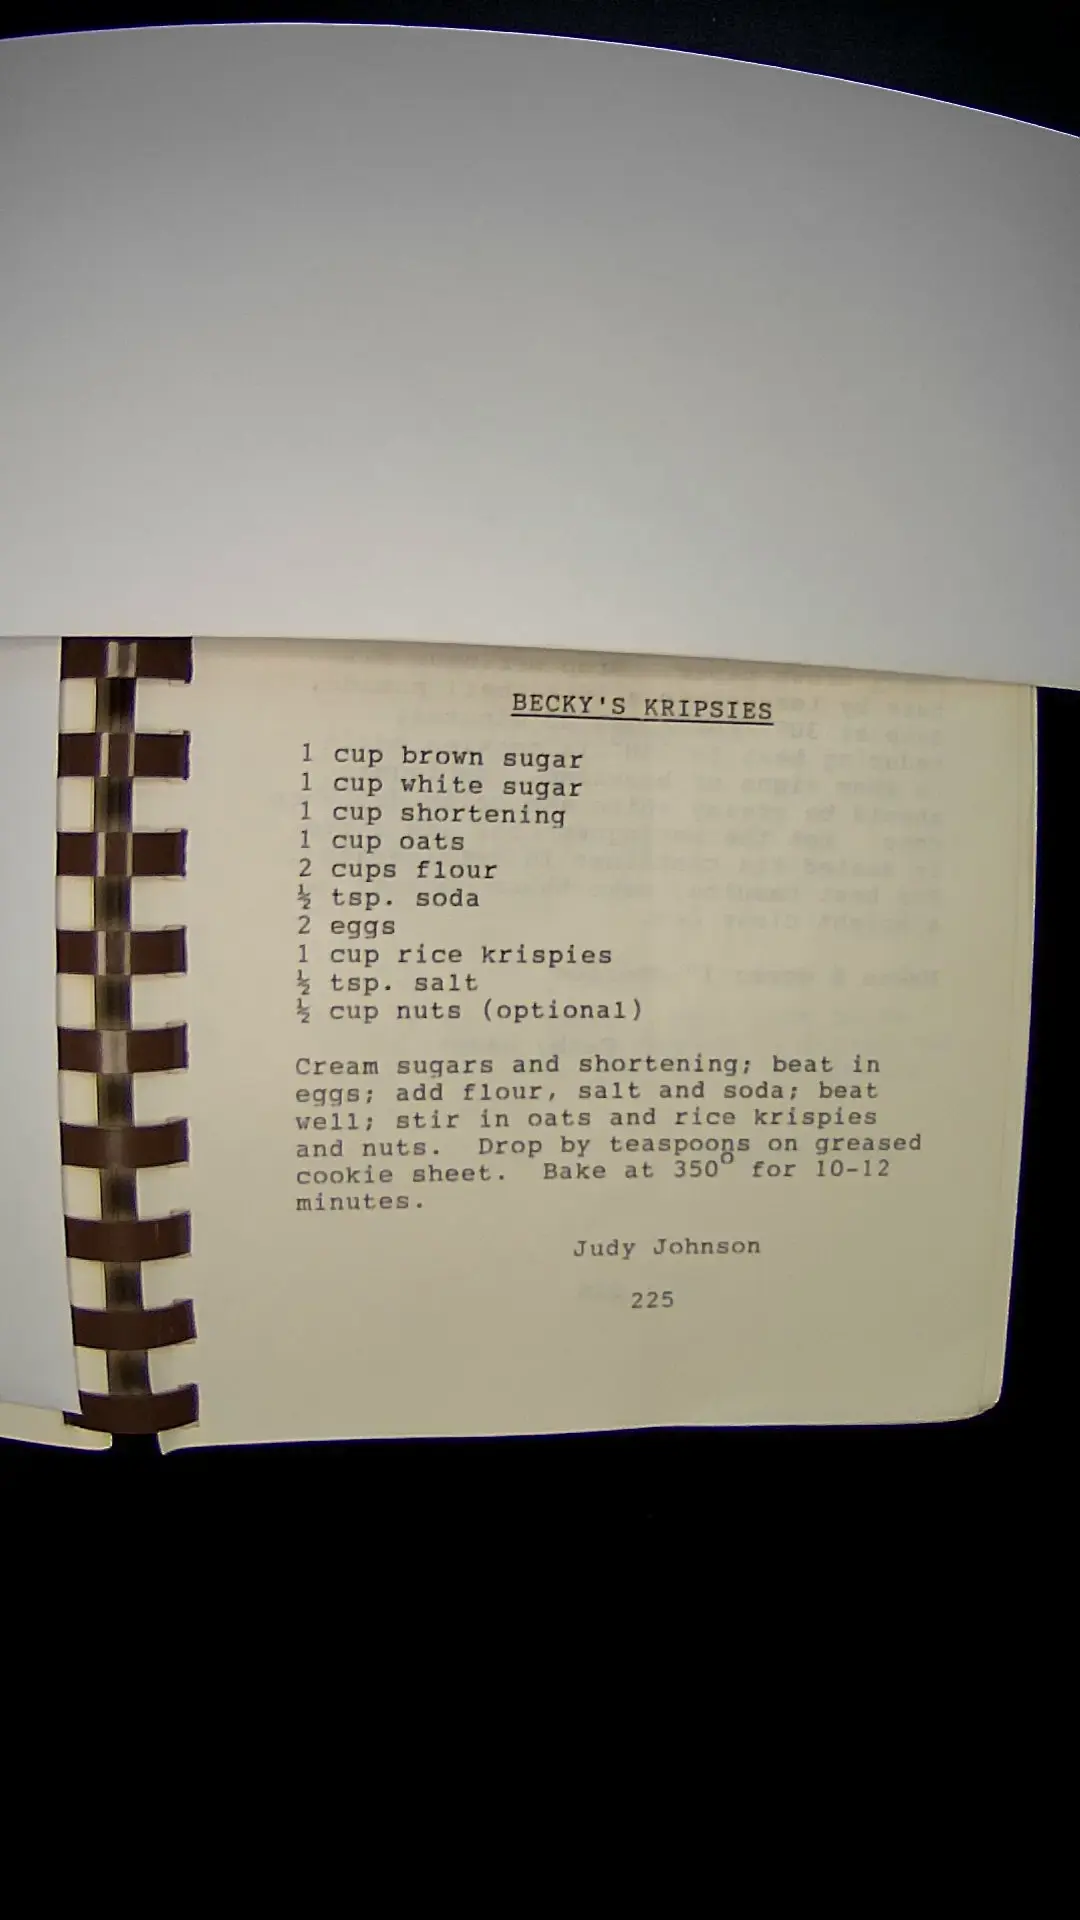 BECKY'S KRIPSIES
1 cup brown sugar
1 cup white sugar
1 cup shortening
1 cup oats
2 cups flour
½ tsp. soda
2 eggs
1 cup rice krispies
½ tsp. salt
½ cup nuts (optional)
Cream sugars and shortening; beat in
eggs; add flour, salt and soda; beat
well; stir in oats and rice krispies
and nuts.  Drop by teaspoons on greased
cookie sheet.  Bake at 350° for 10-12
minutes.
Judy Johnson
225